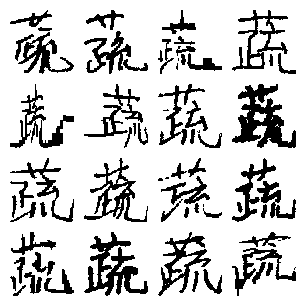 蔬蔬蔬蔬
蔬蔬蔬蔬
蔬蔬蔬蔬
蔬蔬蔬蔬